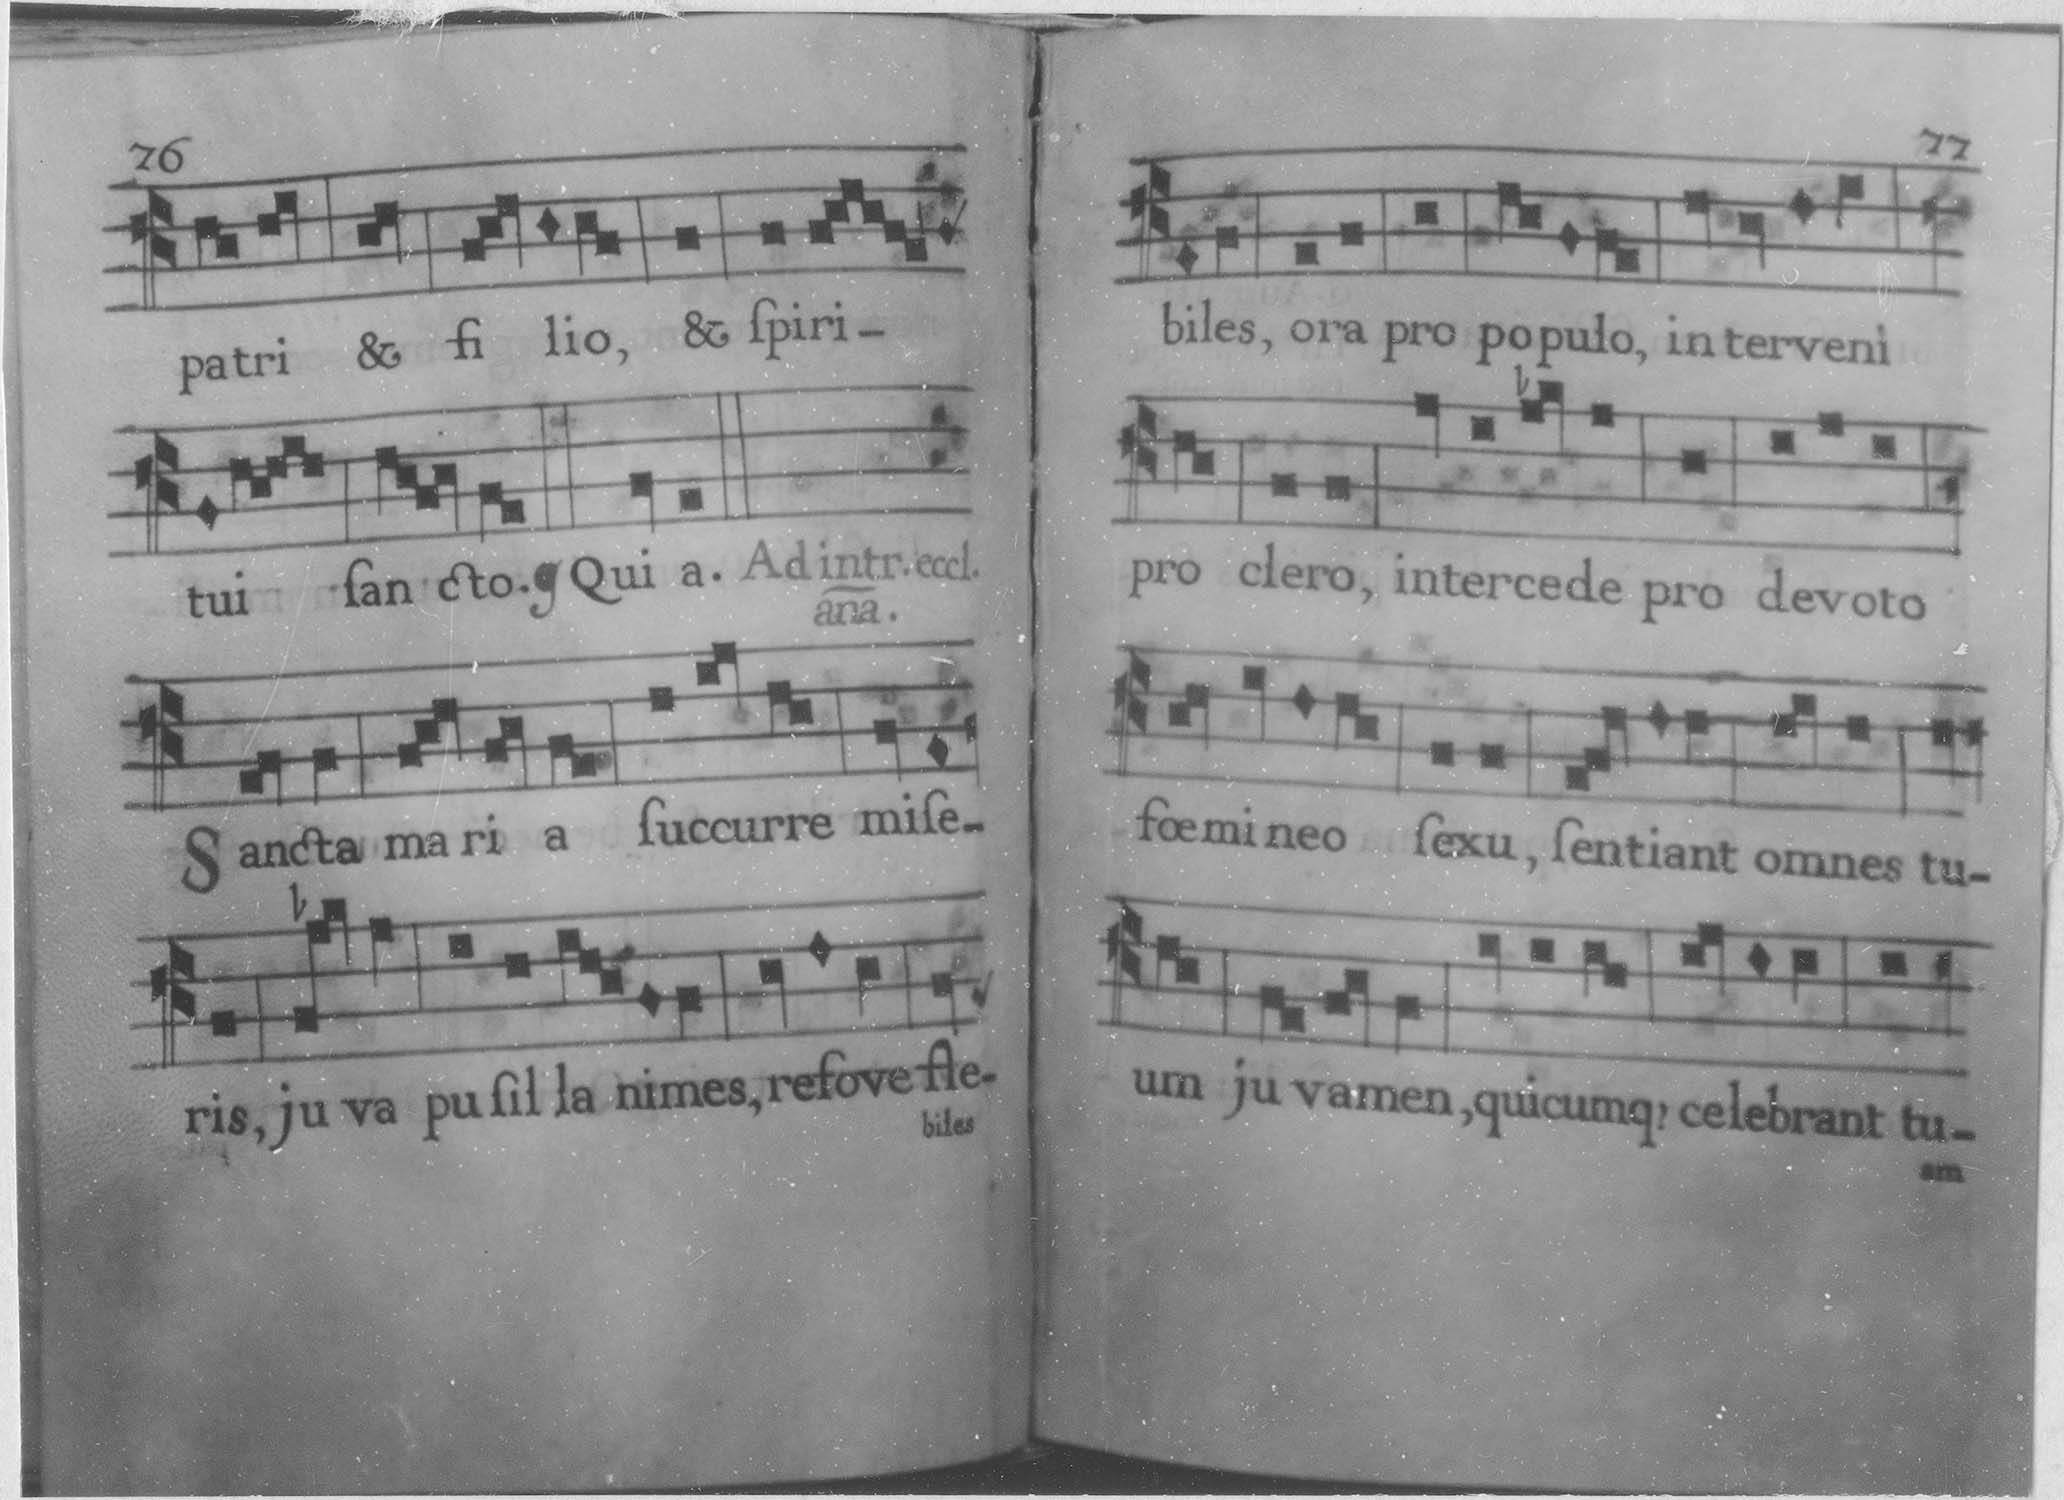 76
patri & fi lio, & ſpiri-
tui ſan cto. Qui a. Ad intr. eccl.
an̄a.
Sancta ma ri a ſuccurre miſe-
ris, ju va pu ſil la nimes, refove fle-
biles
77
biles, ora pro populo, in terveni
pro clero, intercede pro devoto
fœmi neo ſexu, ſentiant omnes tu-
um ju vamen, quicumq; celebrant tu-
am